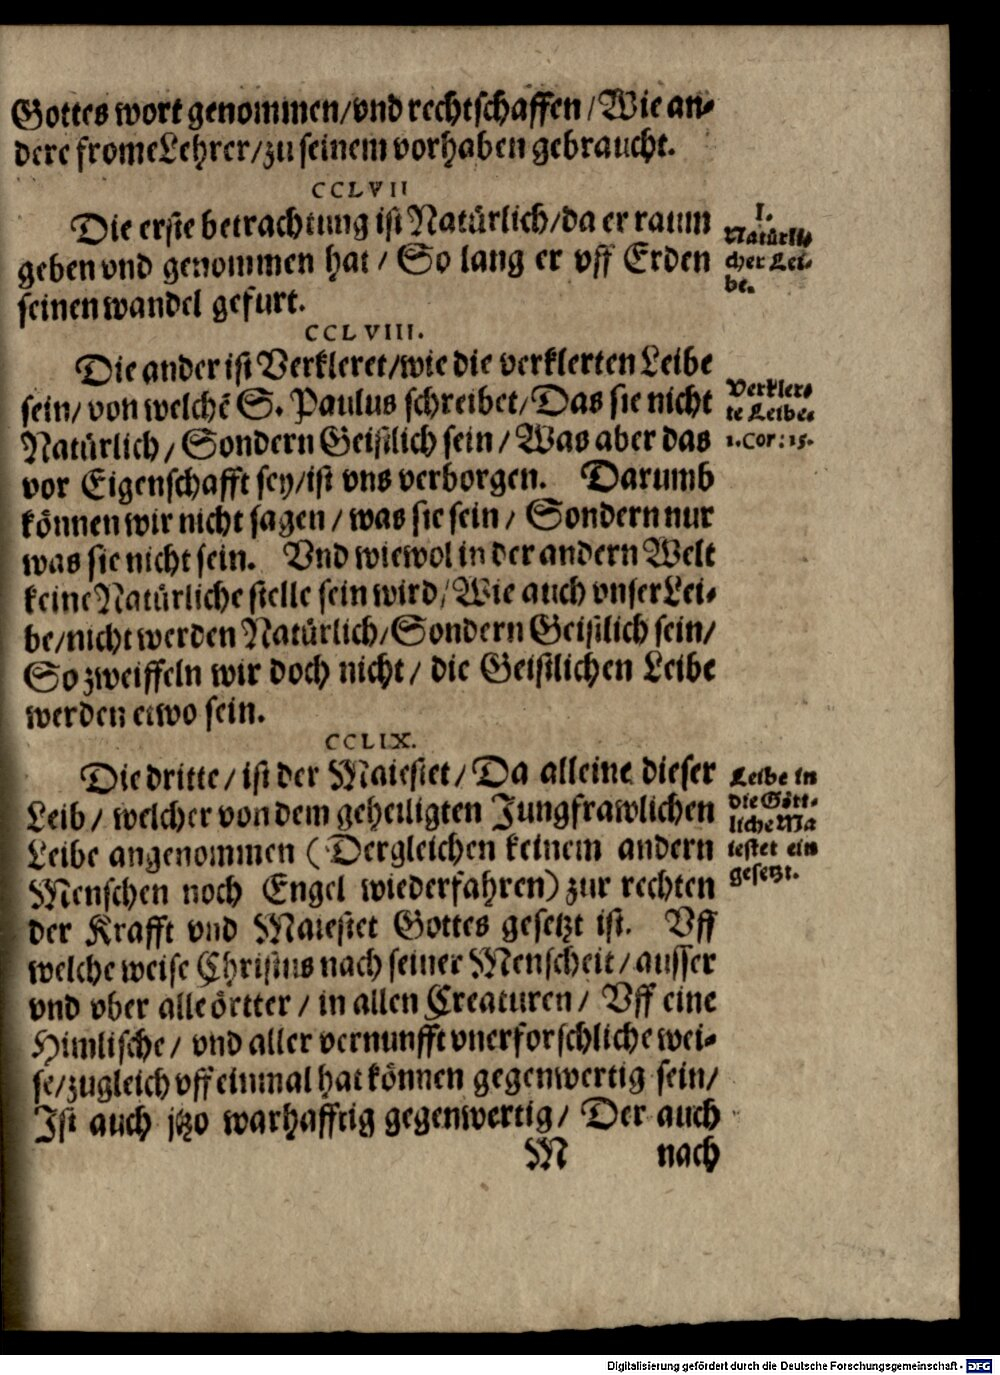 Gottes wort genommen/vnd rechtschaffen/Wie an-
dere frome Lehrer/zu seinem vorhaben gebraucht.
CCLVII
Die erste betrachtung ist Natürlich/da er raum
geben vnd genommen hat/ So lang er vff Erden
seinen wandel gefurt.
I.
Natürli-
cher Lei-
be.
CCLVIII.
Die ander ist Verkleret/wie die verklerten Leibe
sein/ von welchē S. Paulus schreibet/Das sie nicht
Natürlich/ Sondern Geistlich sein/ Was aber das
vor Eigenschafft sey/ist vns verborgen. Darumb
können wir nicht sagen/ was sie sein/ Sondern nur
was sie nicht sein. Vnd wiewol in der andern Welt
keine Natürliche stelle sein wird/Wie auch vnser Lei-
be/nicht werden Natürlich/Sondern Geistlich sein/
So zweiffeln wir doch nicht/ die Geistlichen Leibe
werden etwo sein.
Verkler-
te Leibe.
1.Cor: 15.
CCLIX.
Die dritte/ ist der Maiestet/ Da alleine dieser
Leib/ welcher von dem geheiligten Jungfrawlichen
Leibe angenommen (Dergleichen keinem andern
Menschen noch Engel wiederfahren) zur rechten
der Krafft vnd Maiestet Gottes gesetzt ist. Vff
welche weise Christus nach seiner Menscheit/ ausser
vnd vber alle örtter/ in allen Creaturen/ Vff eine
Himlische/ vnd aller vernunfft vnerforschliche wei-
se/zugleich vff einmal hat können gegenwertig sein/
Ist auch jtzo warhafftig gegenwertig/ Der auch
Leibe in
die Gött-
liche Ma
iestet ein
gesetzt.
M nach
Digitalisierung gefördert durch die Deutsche Forschungsgemeinschaft - DFG